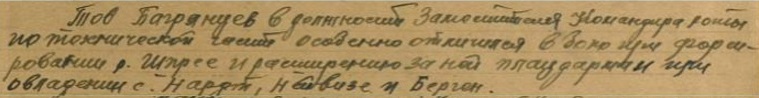 Тов Багрянцев в должности Заместителя Командира роты
по технической части особенно отличился в бою при форси-
ровании р. Шпрее и расширению за ней плацдарма и при
овладении с. Нардт, Нёйвизе и Берген.